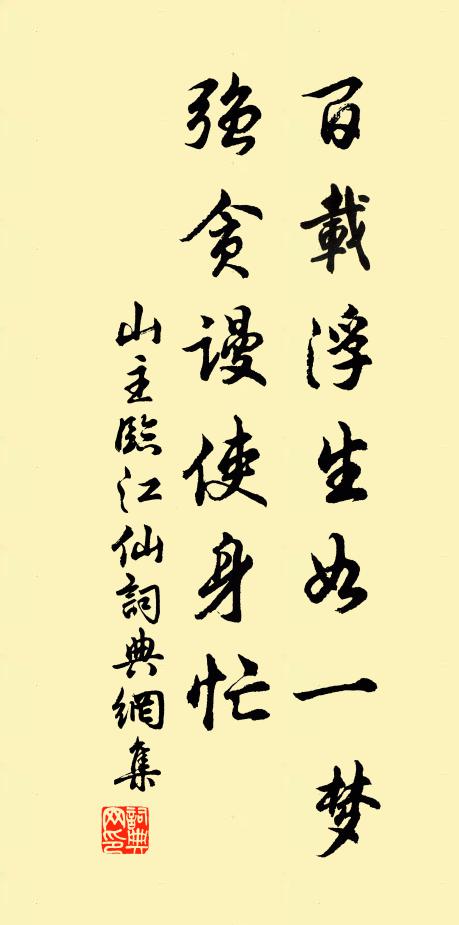 百載浮生如一梦
强贪謾使身忙
山主臨江仙詞典網集
詞典
网印